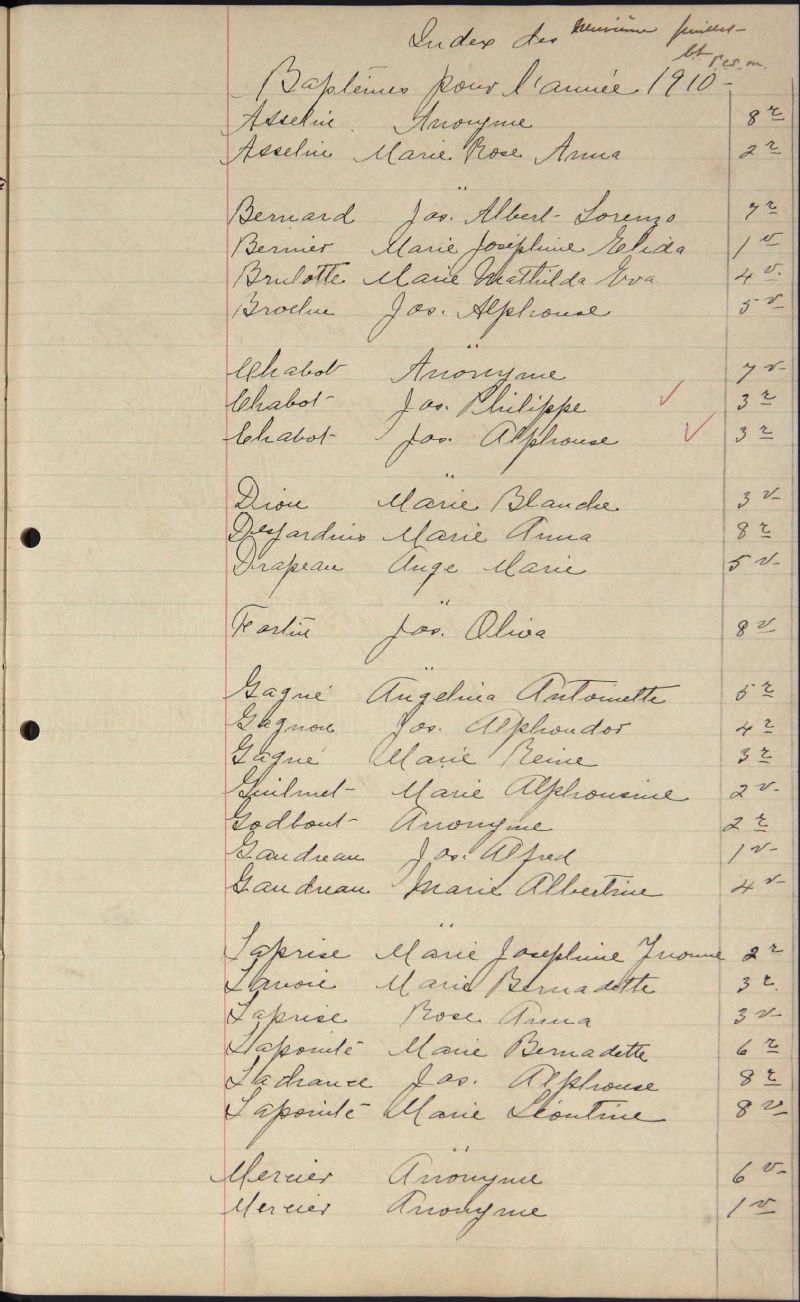 Index des
Baptêmes pour l'année 1910-
Asselin Anonyme 8 r
Asselin Marie Rose Anna 2 r
Bernard Jos. Albert-Lorenzo 7 r
Bernier Marie Joséphine Elida 1 v
Brulotte Marie Mathilda Eva 4 v
Brochu Jos. Alphonse 5 v
Chabot Anonyme 7 v
Chabot Jos. Philippe ✓ 3 r
Chabot Jos. Alphonse ✓ 3 r
Dion Marie Blanche 3 v
Desjardins Marie Anna 8 r
Drapeau Ange Marie 5 v
Fortin Jos. Oliva 8 v
Gagné Angelina Antoinette 5 r
Gagnon Jos. Alphondor 4 r
Gagné Marie Reine 3 r
Guilmet Marie Alphonsine 2 v
Godbout Anonyme 2 r
Gaudreau Jos. Alfred 1 v
Gaudreau Marie Albertine 4 v
Laprise Marie Josephine Yvonne 2 r
Lavoie Marie Bernadette 3 r
Laprise Rose Anna 3 v
Lapointe Marie Bernadette 6 r
Lachance Jos. Alphonse 8 r
Lapointe Marie Léontine 8 v
Mercier Anonyme 6 v
Mercier Anonyme 1 v